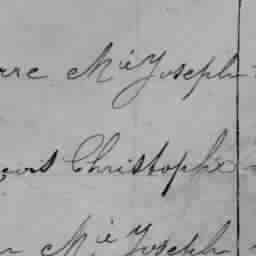 rre Mie Joseph
Christophe
Mie Joseph